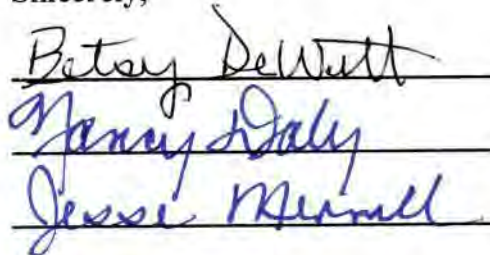 Sincerely,
Betsy DeWitt
Nancy Daly
Jesse Mermell